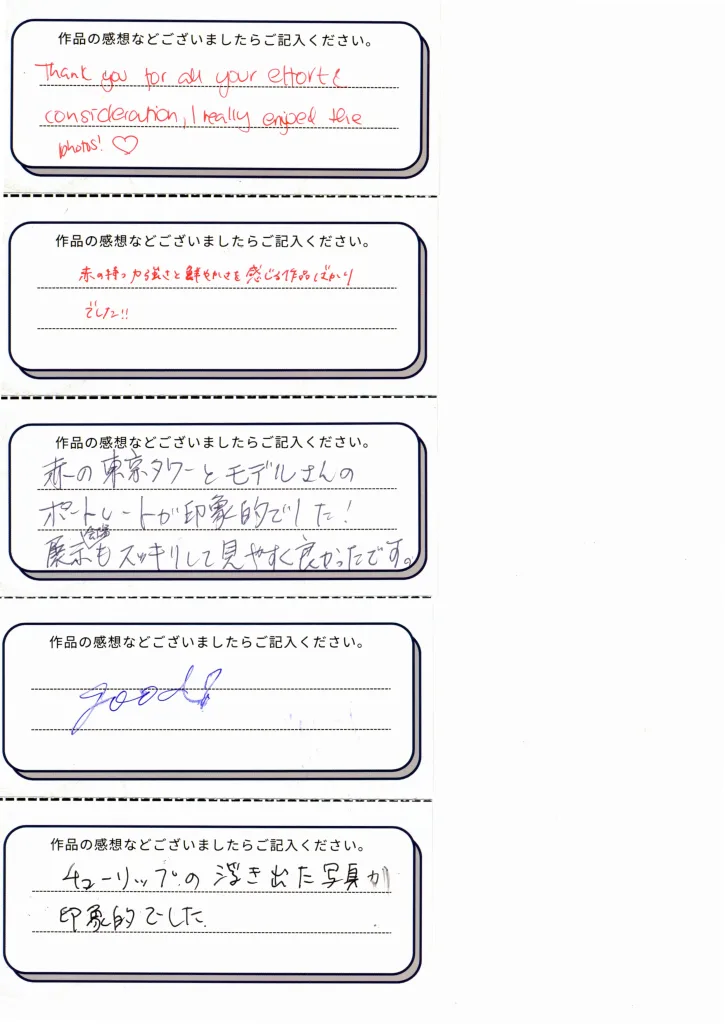 作品の感想などございましたらご記入ください。
Thank you for all your effort &
consideration, I really enjoyed the
photos! ♡
作品の感想などございましたらご記入ください。
赤の持つ力強さと鮮やかさを感じる作品ばかり
でした!!
作品の感想などございましたらご記入ください。
赤の東京タワーとモデルさんの
ポートレートが印象的でした!
会場
展示もスッキリして見やすく良かったです。
作品の感想などございましたらご記入ください。
good!
作品の感想などございましたらご記入ください。
チューリップの浮き出た写真が
印象的でした